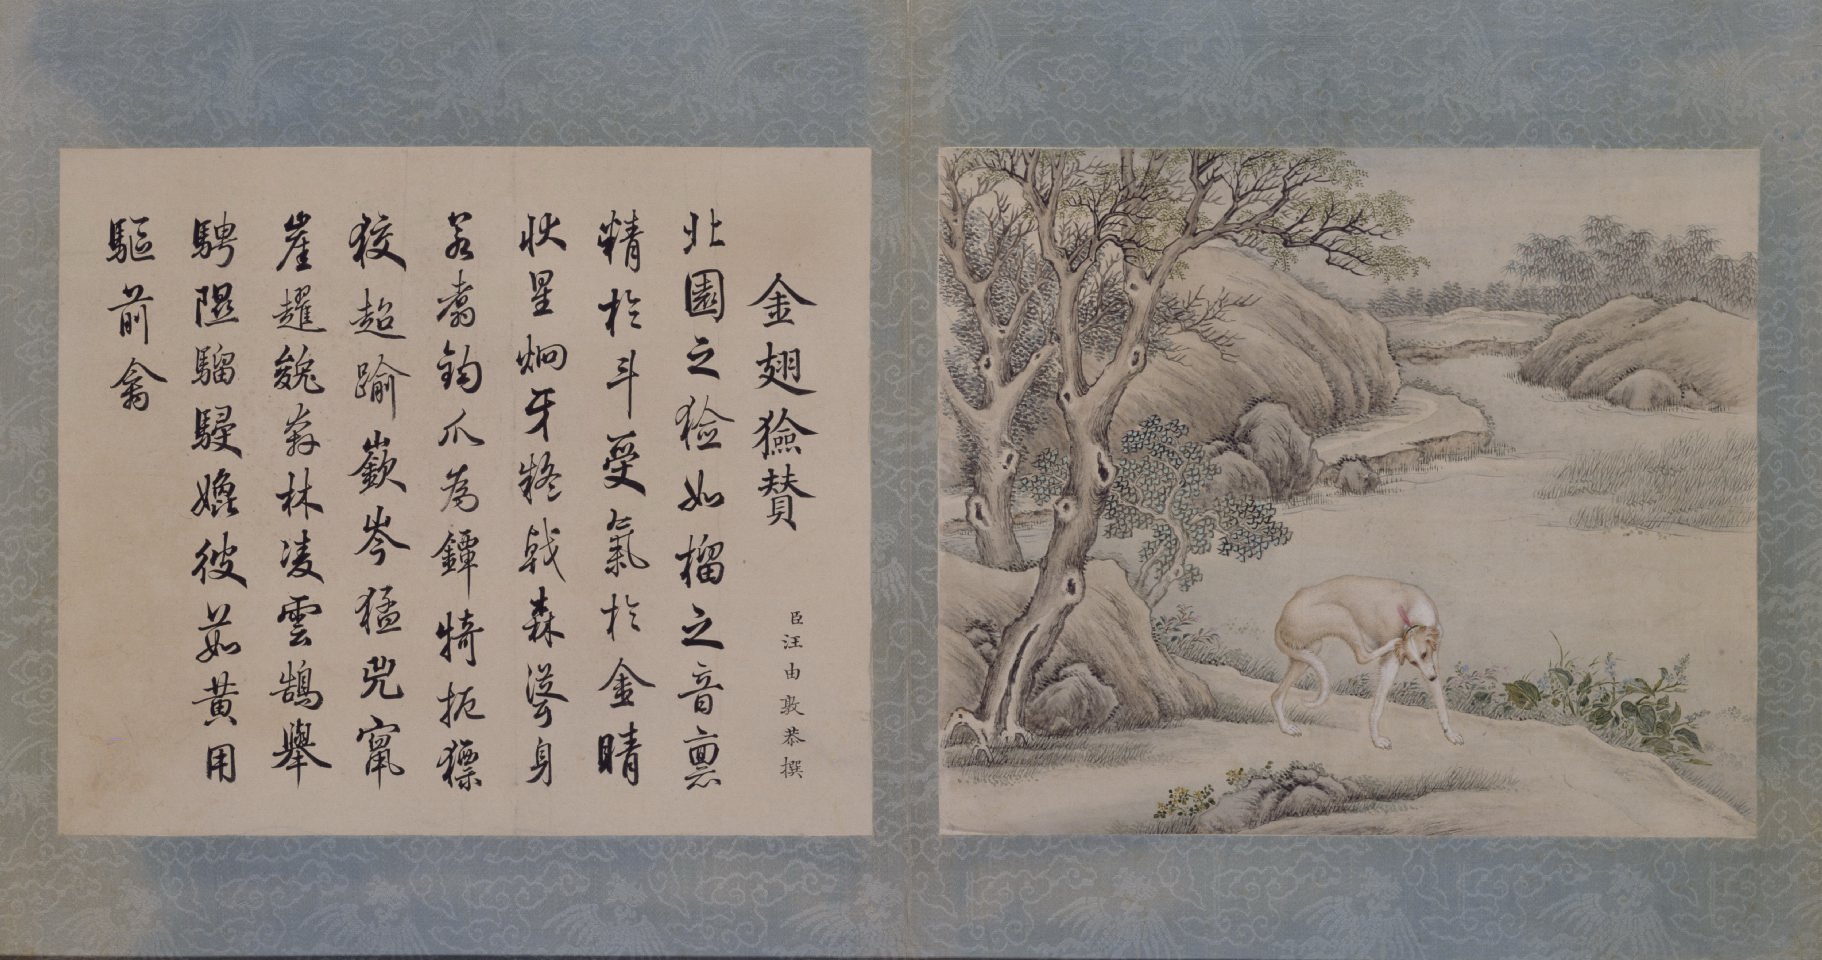 金翅獫贊
臣汪由敦恭撰
北園之獫如榴之音稟
精於斗受氣於金睛
狀星炯牙戟森竦身
若翥鉤爪為鐔犄扼
狡超踰嶔岑猛兕竄
崖趯奔林凌雲鵠舉
騁隰騮駸彼茹黃用
驅前禽